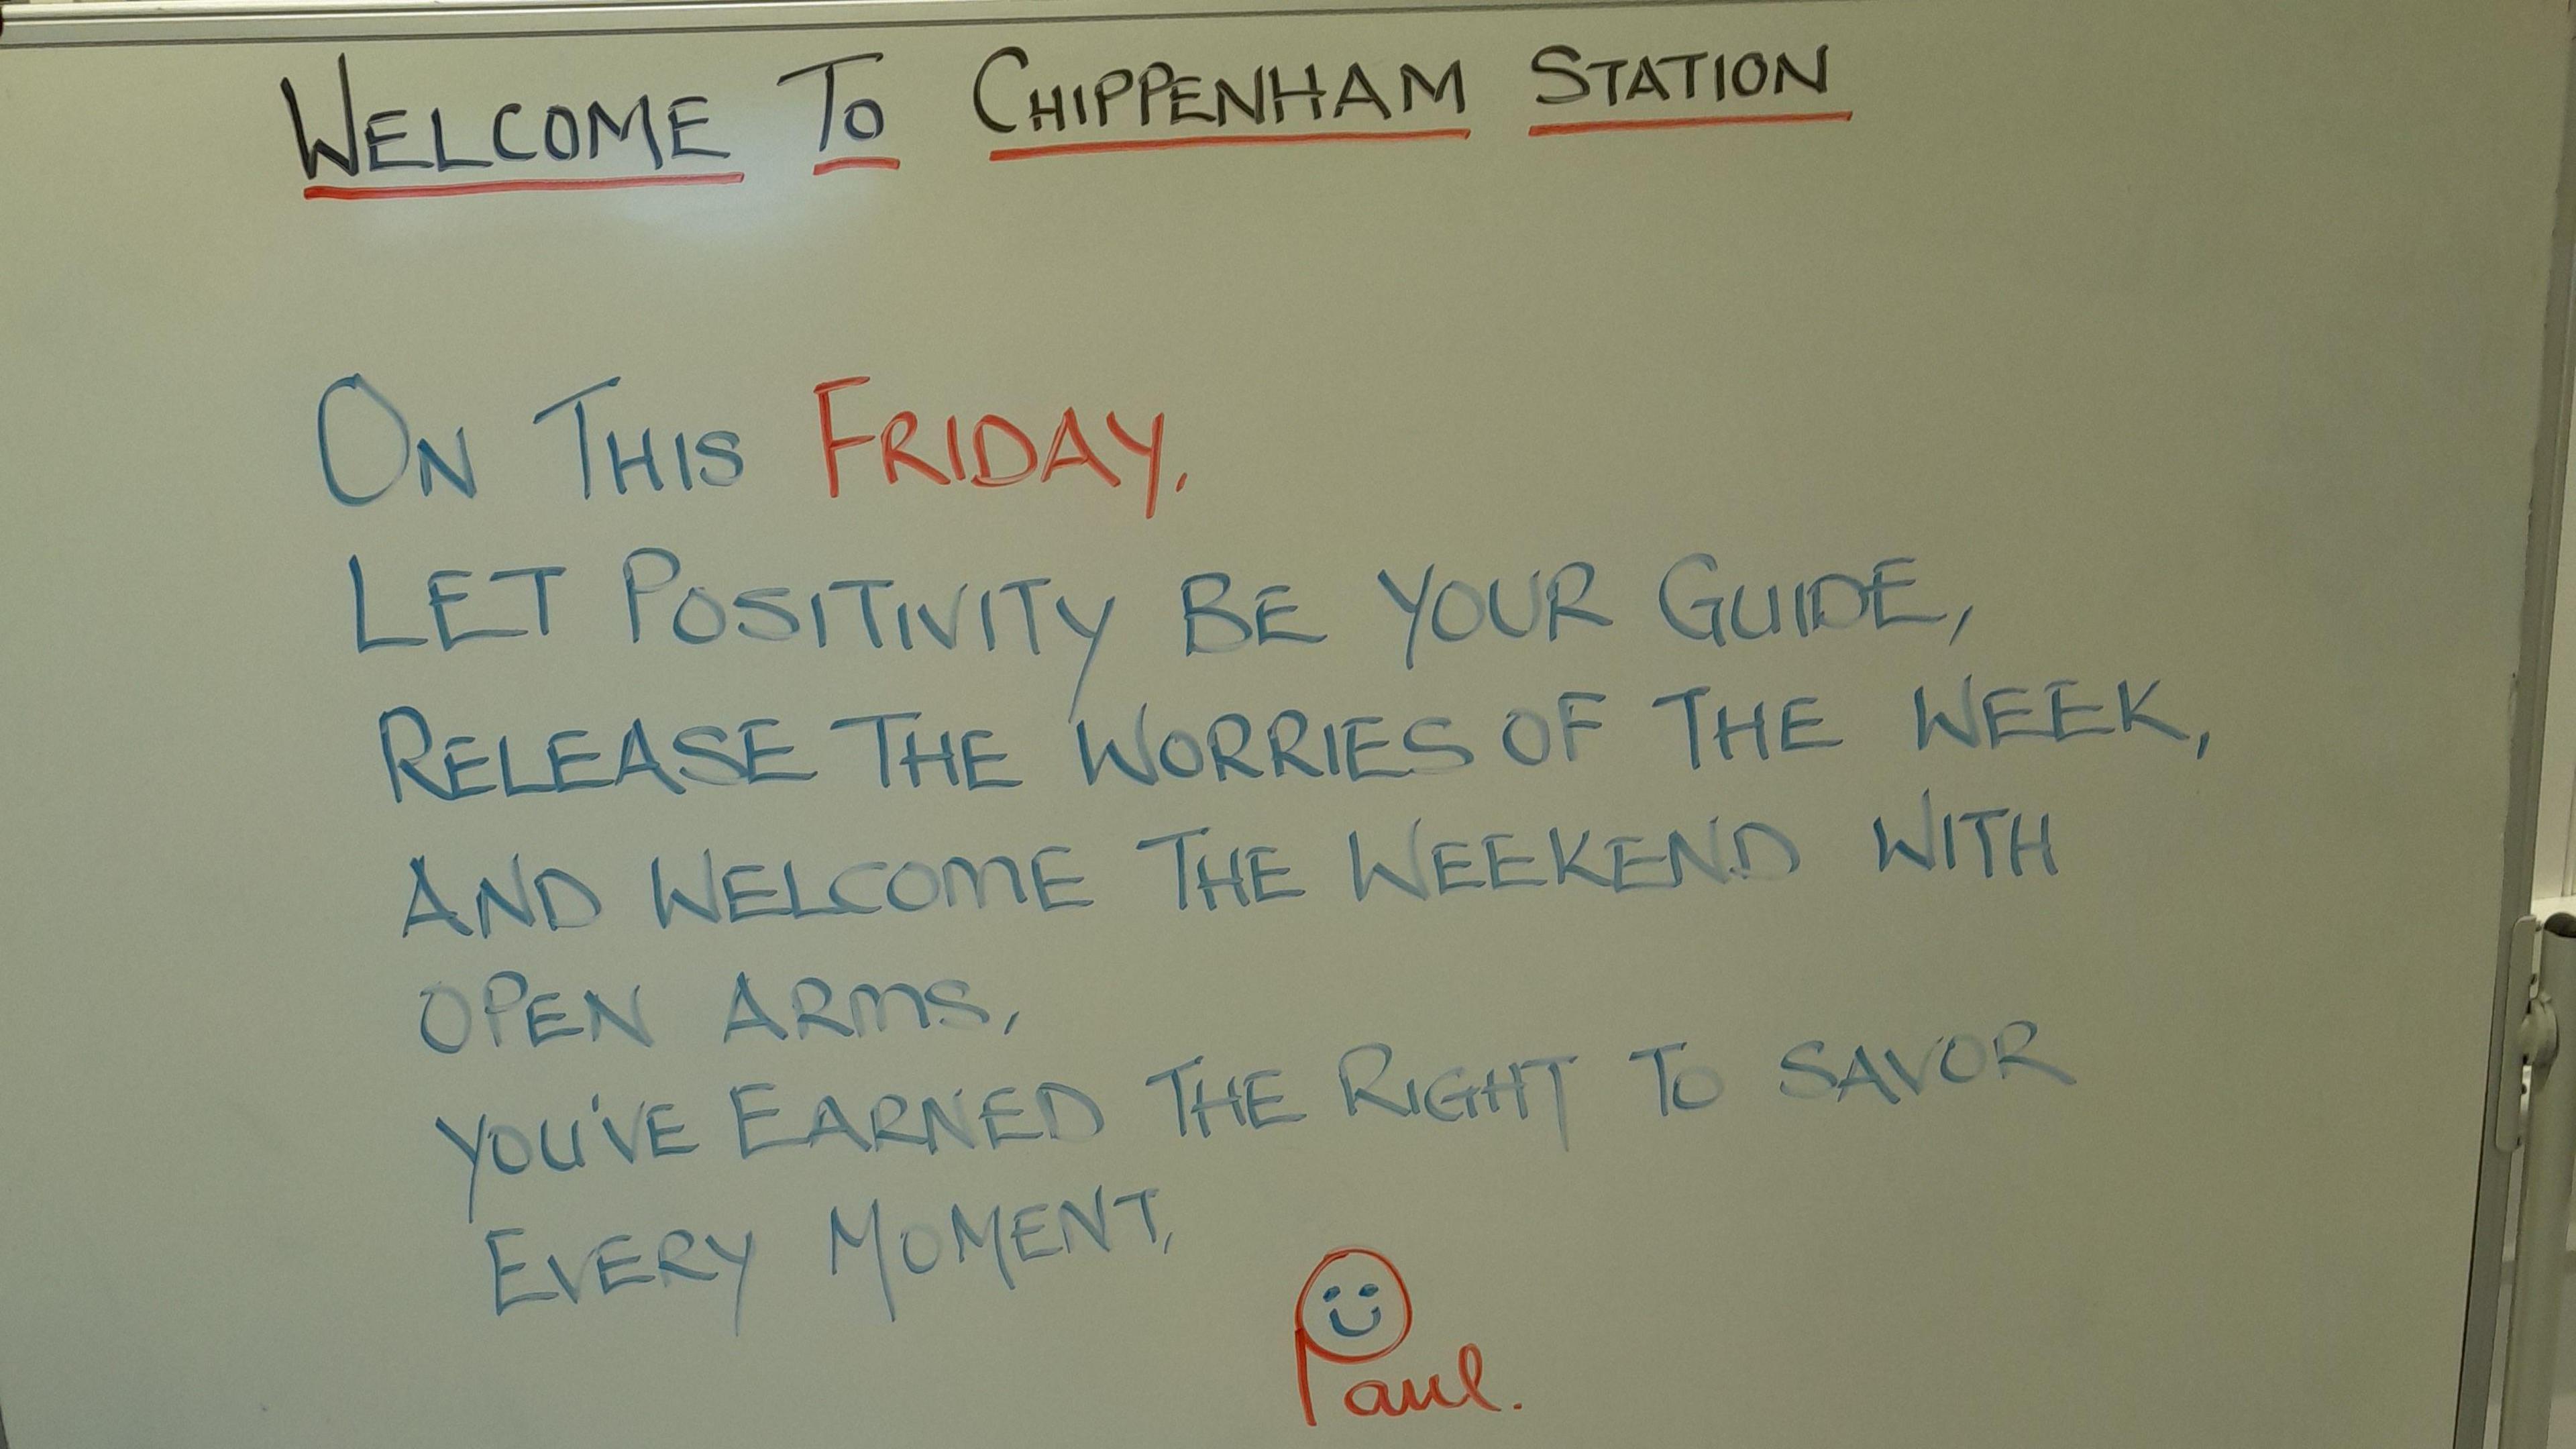 WELCOME TO CHIPPENHAM STATION
ON THIS FRIDAY,
LET POSITIVITY BE YOUR GUIDE,
RELEASE THE WORRIES OF THE WEEK,
AND WELCOME THE WEEKEND WITH
OPEN ARMS,
YOU'VE EARNED THE RIGHT TO SAVOR
EVERY MOMENT,
Paul.